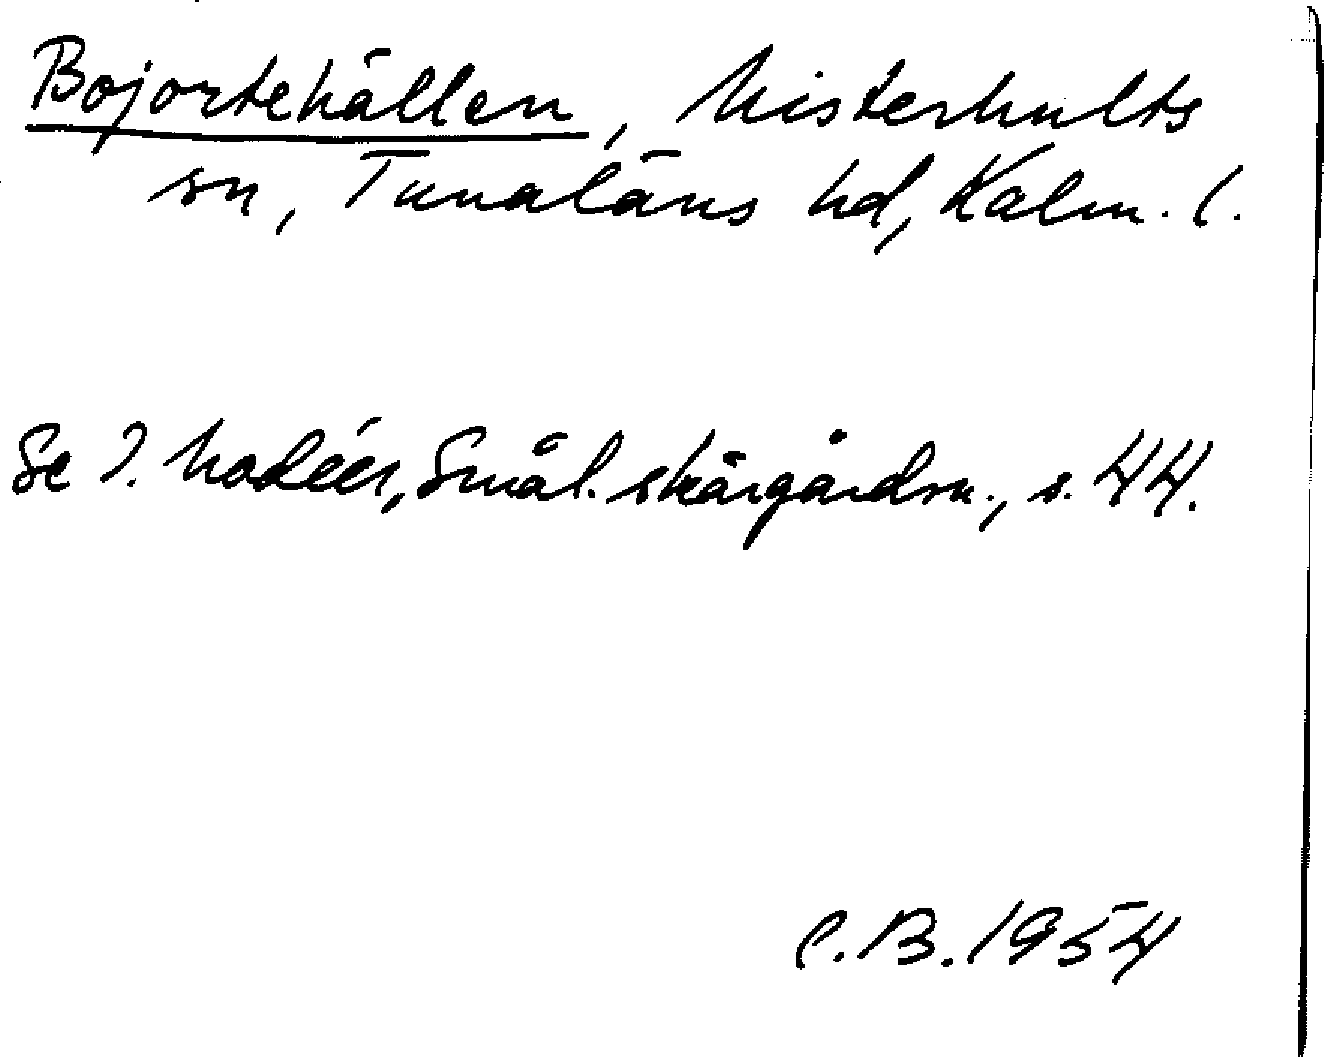 Bojortehällen, Misterhults
sn, Tunaläns hd, Kalm. l.
Se I. Modéer, Smål. skärgårdsn., s. 44.
C.B. 1954